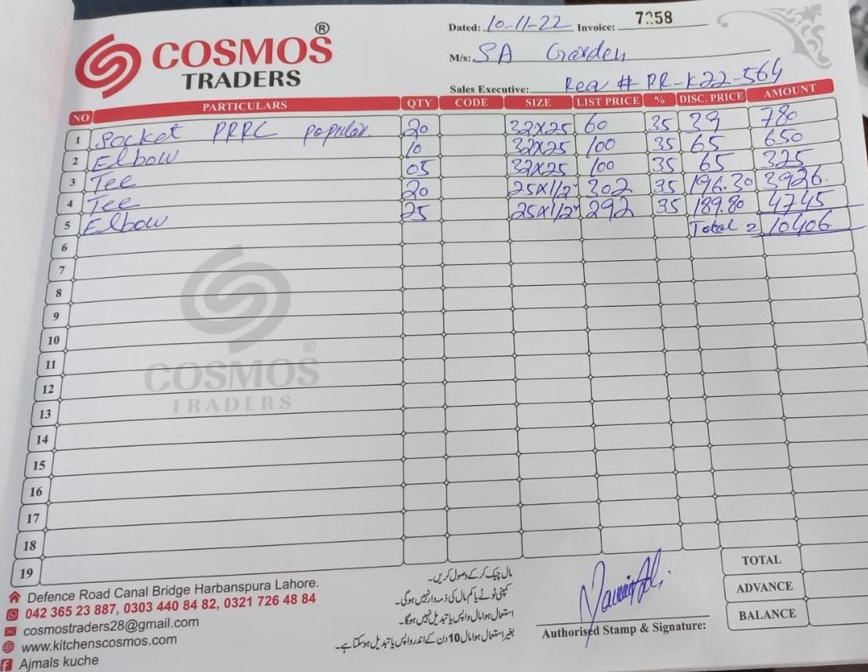 COSMOS ®
TRADERS
Dated: 10-11-22 Invoice: 7258
M/s: SA Garden
Sales Executive: Req # PR-K22-564
NO PARTICULARS QTY CODE SIZE LIST PRICE % DISC. PRICE AMOUNT
1 Socket PPRC popular 20 32x25 60 35 39 780
2 Elbow 10 32x25 100 35 65 650
3 Tee 05 32x25 100 35 65 325
4 Tee 20 25x1/2" 302 35 196.30 3926
5 Elbow 25 25x1/2" 292 35 189.80 4745
6 Total = 10406
7
8
9
10
11
12
13
14
15
16
17
18
19
COSMOS ®
TRADERS
TOTAL
ADVANCE
BALANCE
Defence Road Canal Bridge Harbanspura Lahore.
042 365 23 887, 0303 440 84 82, 0321 726 48 84
cosmostraders28@gmail.com
www.kitchenscosmos.com
Ajmals kuche
مال چیک کر کے وصول کریں۔
کمپنی ٹوٹے یا کم مال کی ذمہ دار نہیں ہوگی۔
استعمال ہوا مال واپس یا تبدیل نہیں ہوگا۔
بغیر استعمال ہوا مال 10 دن کے اندر واپس یا تبدیل ہو سکتا ہے۔
Authorised Stamp & Signature: